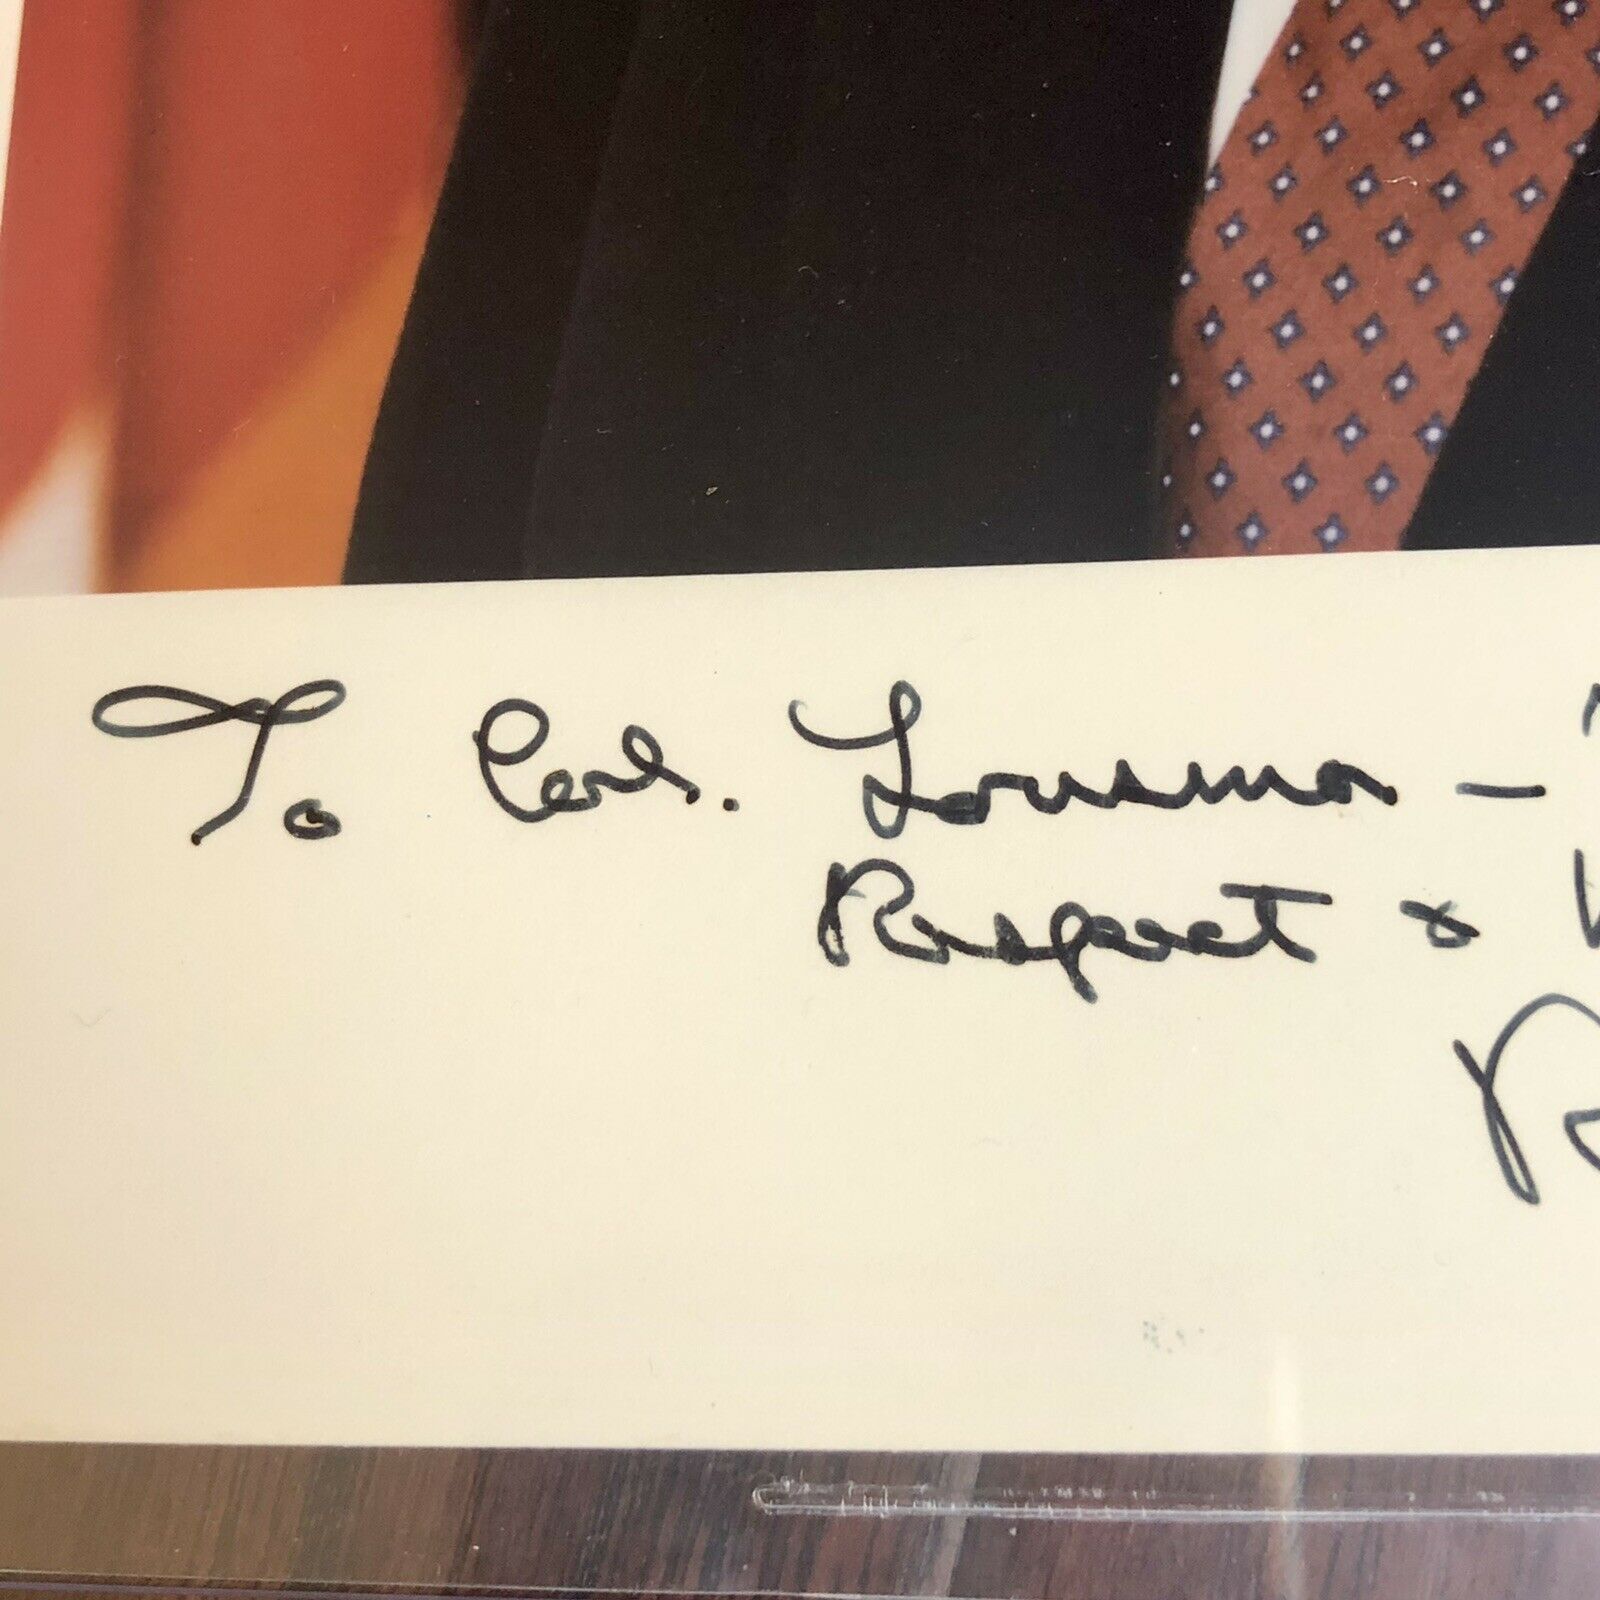 To Col. Lousma –
Respect &